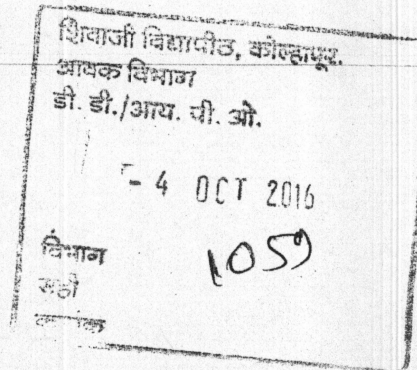 शिवाजी विद्यापीठ, कोल्हापूर.
आवक विभाग
डी. डी./आय. पी. ओ.
- 4 OCT 2016
विभाग
सही
क्रमांक